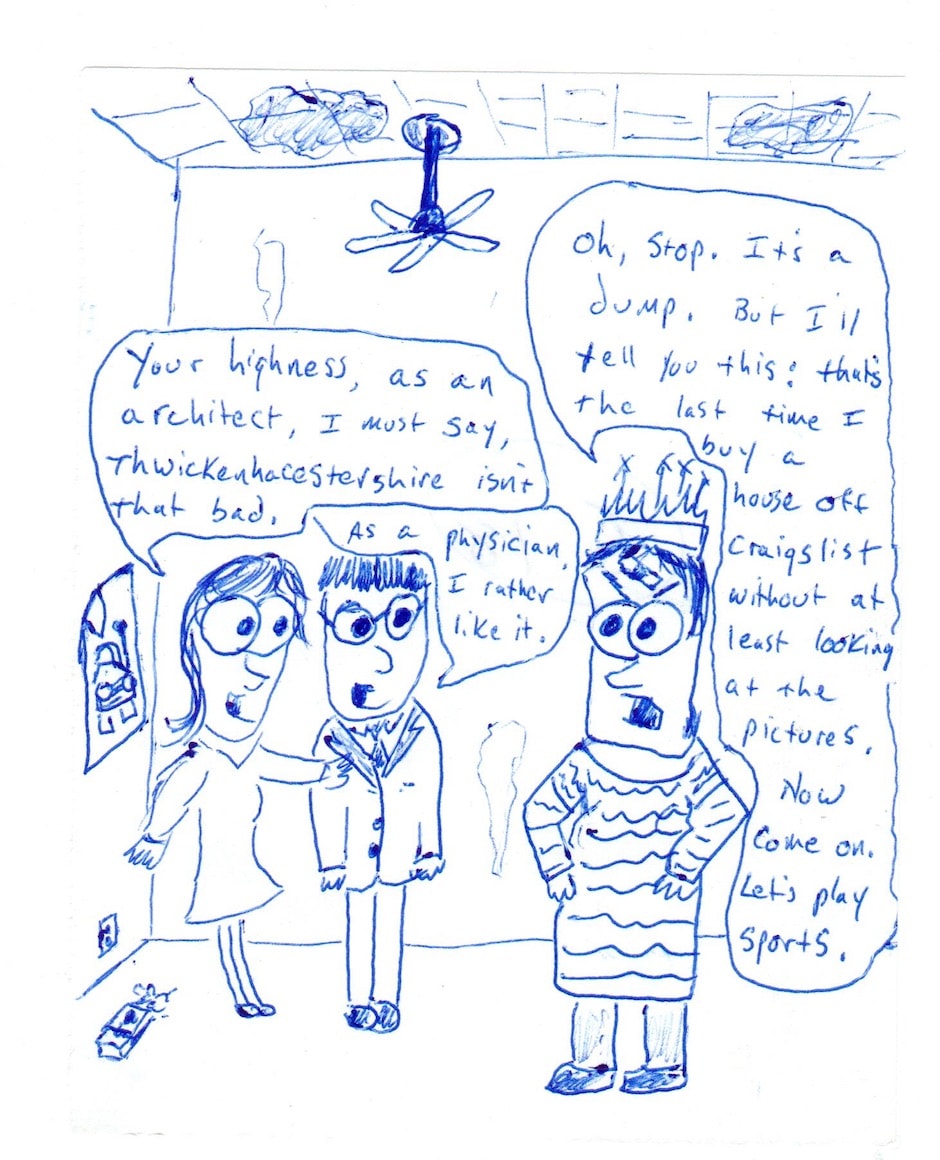 Your highness, as an
architect, I must say,
Thwickenhacestershire isn't
that bad.
As a physician,
I rather
like it.
Oh, stop. It's a
dump. But I'll
tell you this: that's
the last time I
buy a
house off
Craigslist
without at
least looking
at the
pictures.
Now
come on.
Let's play
sports.